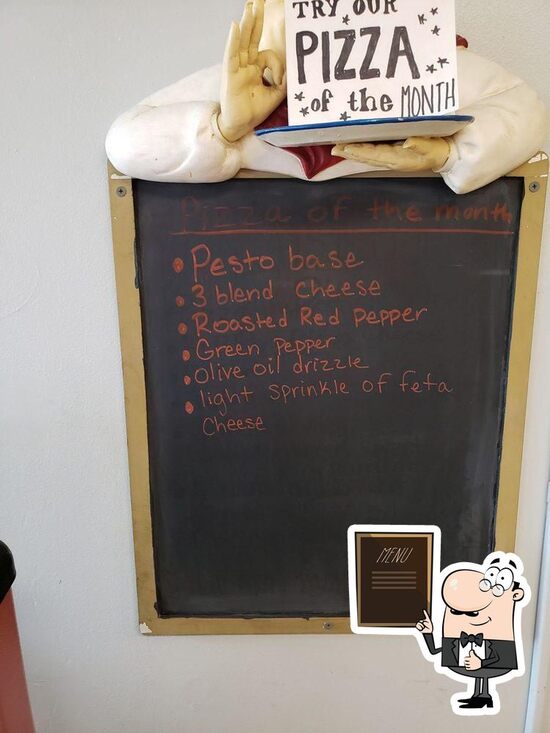 TRY OUR
PIZZA
of the MONTH
Pizza of the month
• Pesto base
• 3 blend cheese
• Roasted Red Pepper
• Green Pepper
• Olive oil drizzle
• light sprinkle of feta
cheese
MENU